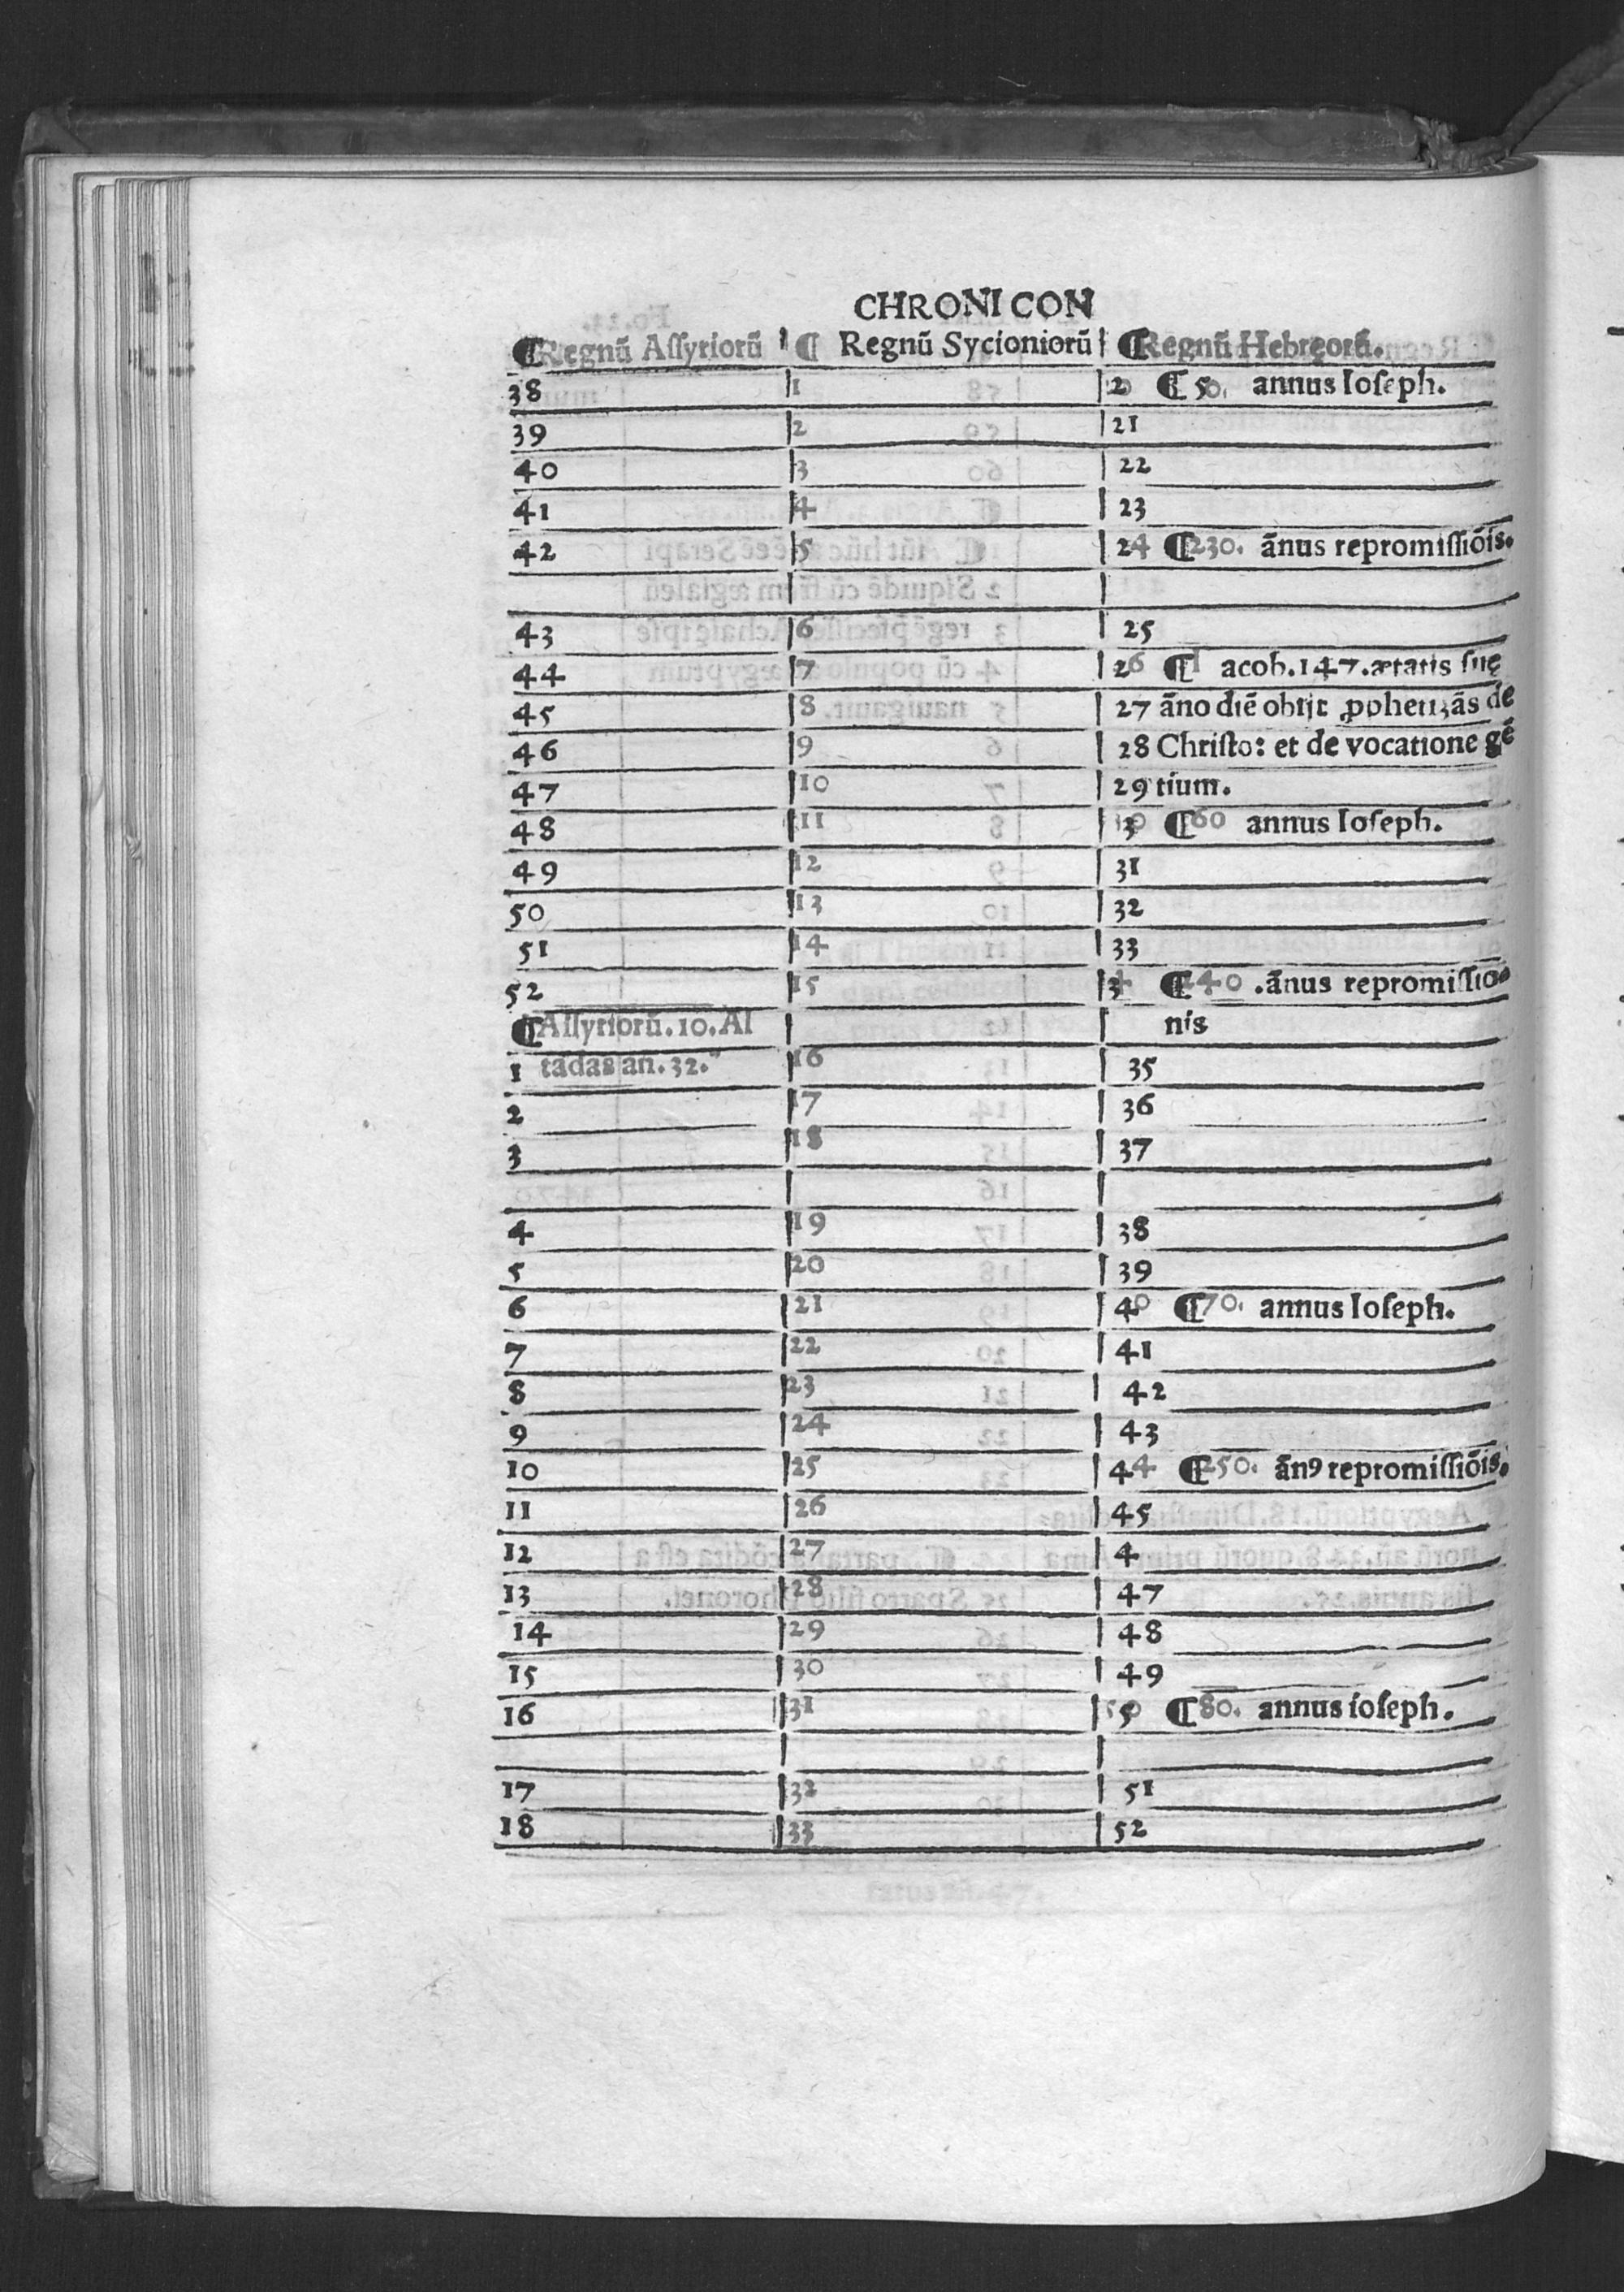 CHRONICON
¶Regnũ Aſſyriorũ ¶ Regnũ Sycioniorũ ¶Regnũ Hebręorũ.
38 1 20 ¶ 50. annus Ioſeph.
39 2 21
40 3 22
41 4 23
42 5 24 ¶230. ãnus repromiſſiõis.
43 6 25
44 7 26 ¶I acob.147.ætatis ſuę
45 8 27 ãno diẽ obijt ꝓphetizãs de
46 9 28 Chriſto: et de vocatione gẽ
47 10 29 tium.
48 11 30 ¶60 annus Ioſeph.
49 12 31
50 13 32
51 14 33
52 15 34 ¶240 .ãnus repromiſſio-
¶Aſſyriorũ.10.Al nis
1 tadas an.32. 16 35
2 17 36
3 18 37
4 19 38
5 20 39
6 21 40 ¶70. annus Ioſeph.
7 22 41
8 23 42
9 24 43
10 25 44 ¶250. ãn9 repromiſſiõis.
11 26 45
12 27 4
13 28 47
14 29 48
15 30 49
16 31 50 ¶80. annus ioſeph.
17 32 51
18 33 52